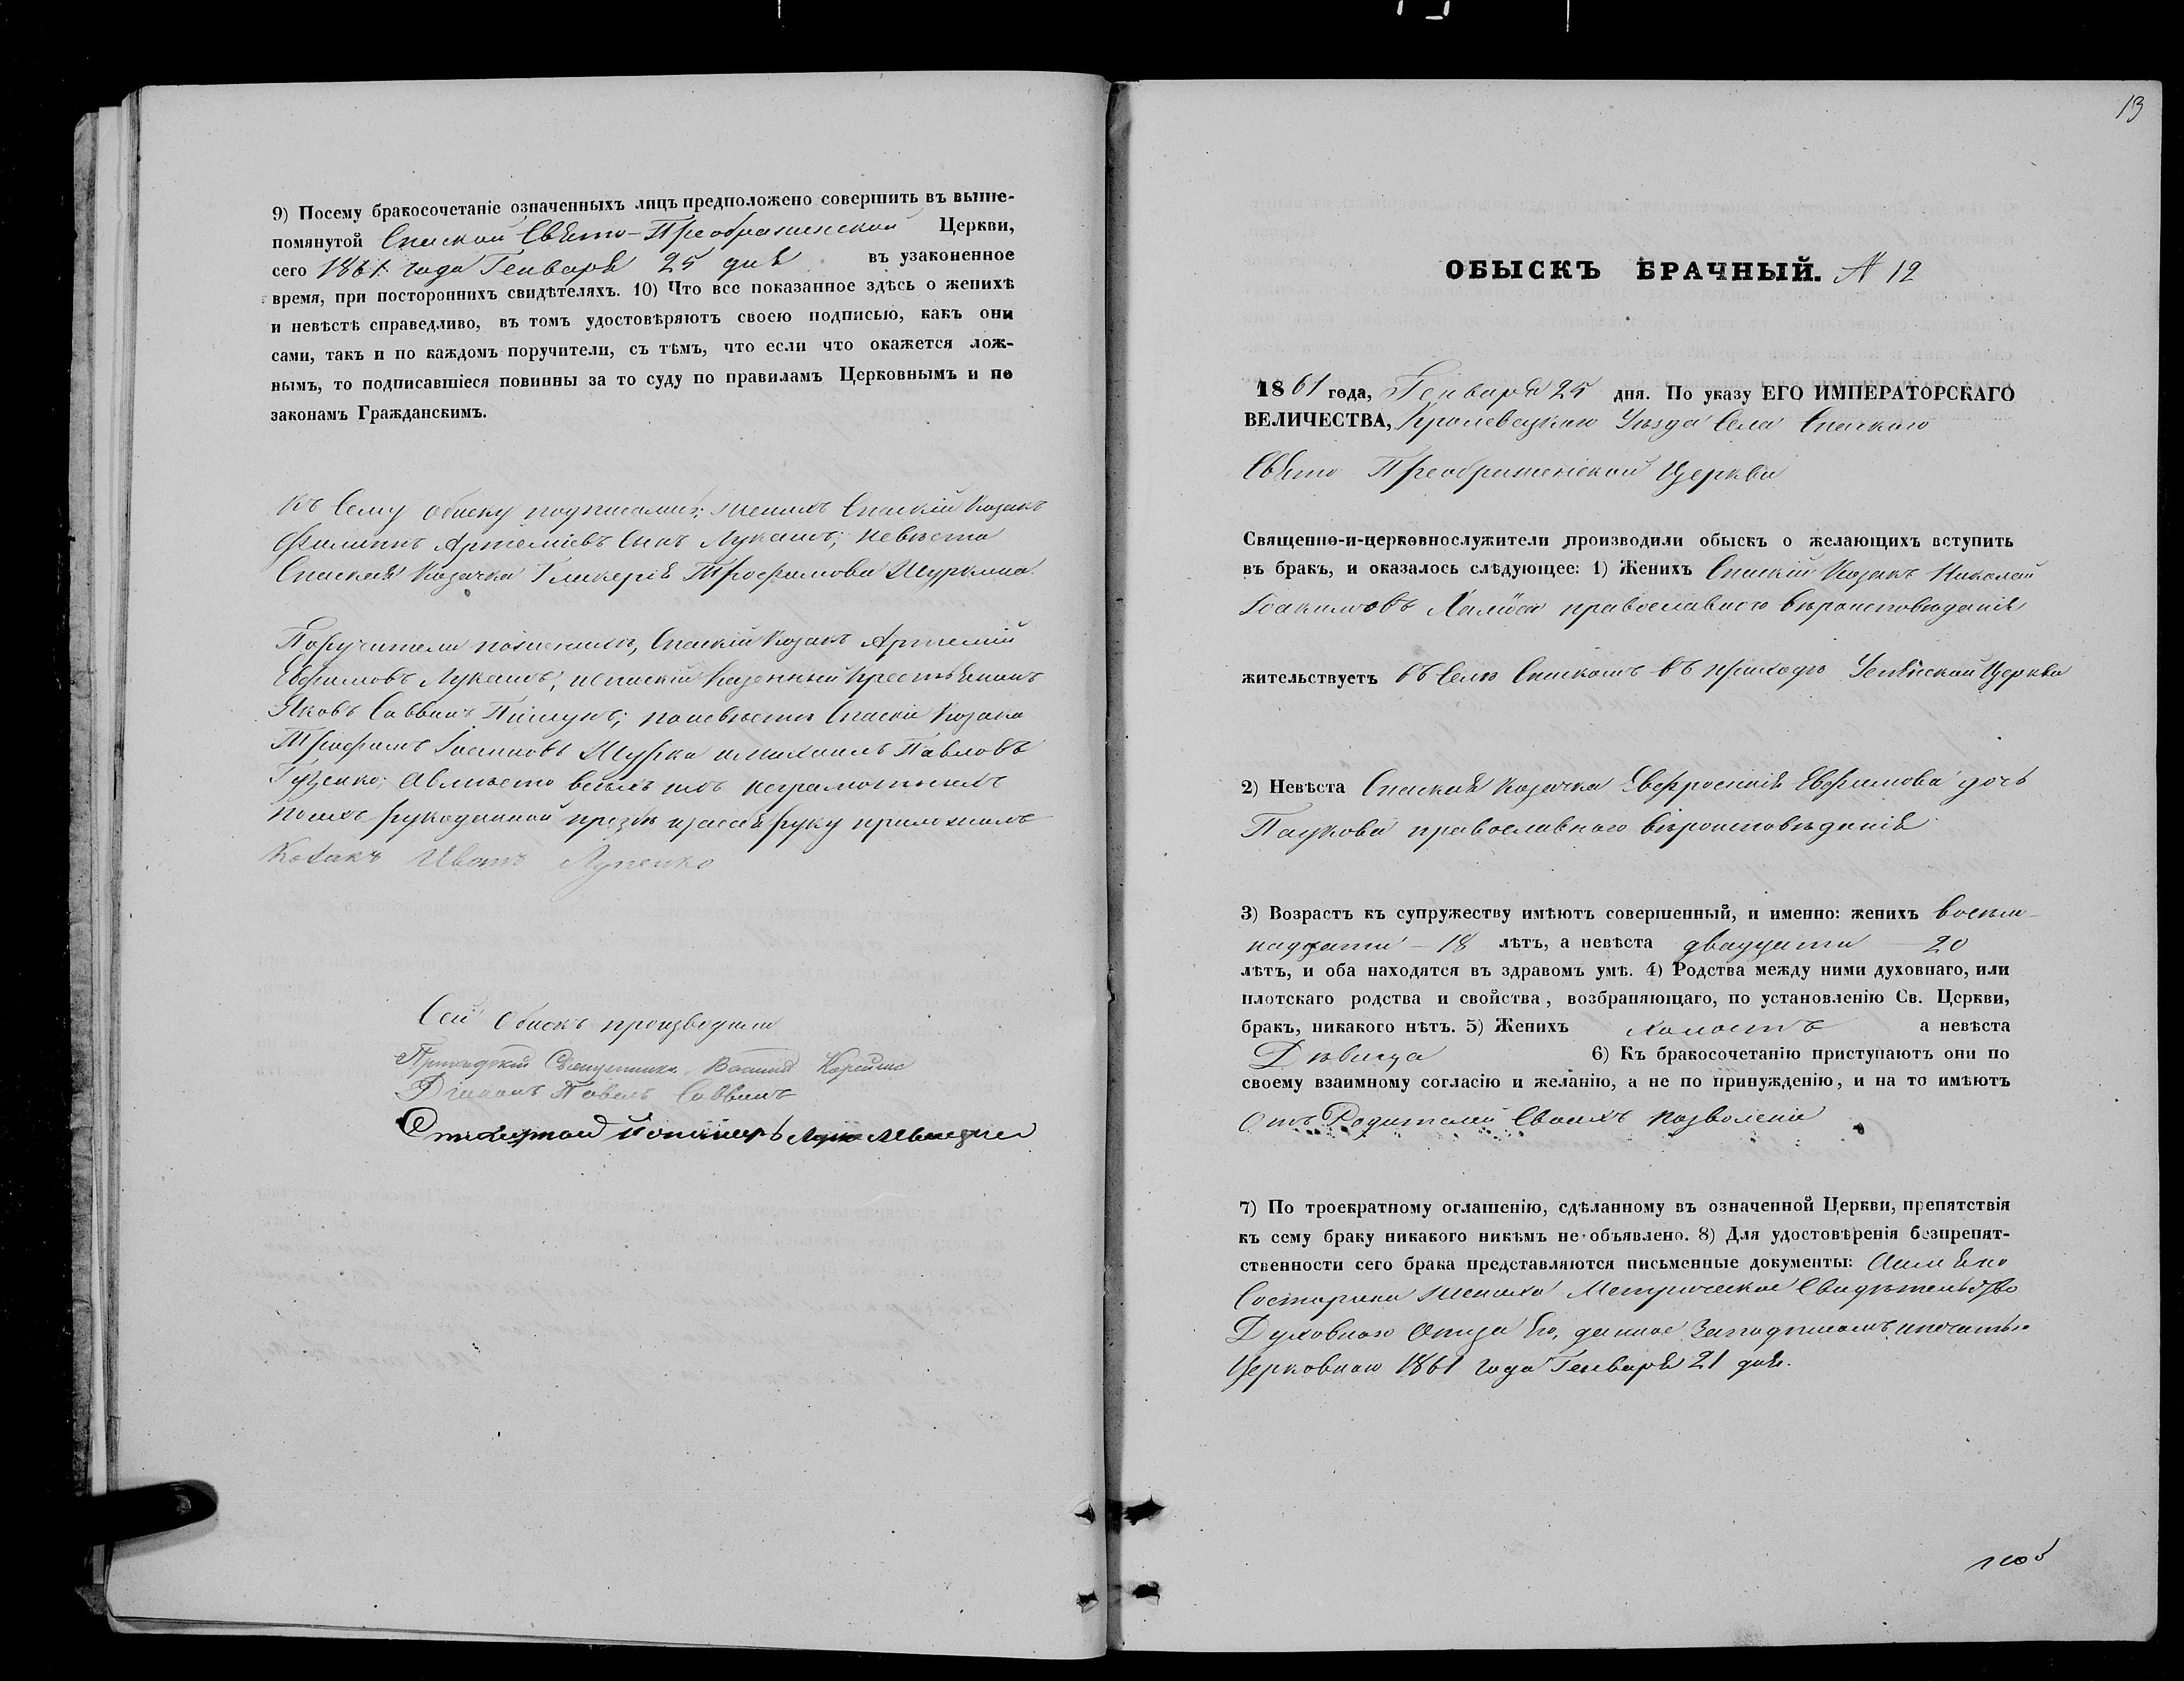 9) Посему бракосочетаніе означенныхъ лицъ предположено совершить въ выше-
помянутой Спаской Свято-Преображенской Церкви,
сего 1861 года Генваря 25 дня въ узаконенное
время, при постороннихъ свидѣтеляхъ. 10) Что все показанное здѣсь о женихѣ
и невѣстѣ справедливо, въ томъ удостовѣряютъ своею подписью, какъ они
сами, такъ и по каждомъ поручители, съ тѣмъ, что если что окажется лож-
нымъ, то подписавшіеся повинны за то суду по правиламъ Церковнымъ и по
законамъ Гражданскимъ.
Къ сему обыску женихъ Спаскій Козакъ
Филиппъ Артеміевъ сынъ Лукашъ; невѣста
Спаская Козачка Гликерія Трофимова Шуркина
Поручители по женихѣ, Спаскій Козакъ Артемій
Евфимовъ Лукашъ, Спаскій Казенный Крестьянинъ
Яковъ Саввинъ по невѣстѣ Спаскіе Козаки
Трофимъ Шурка и Михаилъ Павловъ
Гузенко; а вмѣсто всѣхъ ихъ неграмотныхъ
по ихъ рукоданной прозьбѣ и за себя руку приложилъ
Козакъ Иванъ
Сей обыскъ производили
Приходскій Священникъ Василій
Діаконъ Павелъ Саввинъ
13
ОБЫСКЪ БРАЧНЫЙ. № 12
1861 года, Генваря 25 дня. По указу ЕГО ИМПЕРАТОРСКАГО
ВЕЛИЧЕСТВА, Кролевецкаго Уѣзда Села Спаскаго
Свято Преображенской Церкви
Священно-и-церковнослужители производили обыскъ о желающихъ вступить
въ бракъ, и оказалось слѣдующее: 1) Женихъ Спаскій Козакъ Николай
Іоакимовъ православнаго вѣроисповѣданія
жительствуетъ въ Селѣ Спаскомъ въ приходѣ Успѣнской Церкви
2) Невѣста Спаская Козачка Евфросинія Евфимова дочь
Паукова православнаго вѣроисповѣданія
3) Возрастъ къ супружеству имѣютъ совершенный, и именно: женихъ восем-
надцати - 18 лѣтъ, а невѣста двадцати 20
лѣтъ, и оба находятся въ здравомъ умѣ. 4) Родства между ними духовнаго, или
плотскаго родства и свойства, возбраняющаго, по установленію Св. Церкви,
бракъ, никакого нѣтъ. 5) Женихъ холостъ а невѣста
Дѣвица 6) Къ бракосочетанію приступаютъ они по
своему взаимному согласію и желанію, а не по принужденію, и на то имѣютъ
отъ Родителей своихъ позволеніе
7) По троекратному оглашенію, сдѣланному въ означенной Церкви, препятствія
къ сему браку никакого никѣмъ не объявлено. 8) Для удостовѣренія безпрепят-
ственности сего брака представляются письменные документы: а именно
Со стороны жениха Метрическое Свидѣтельство
Духовнаго Отца его, данное за подписомъ и печатью
Церковною 1861 года Генваря 21 дня.